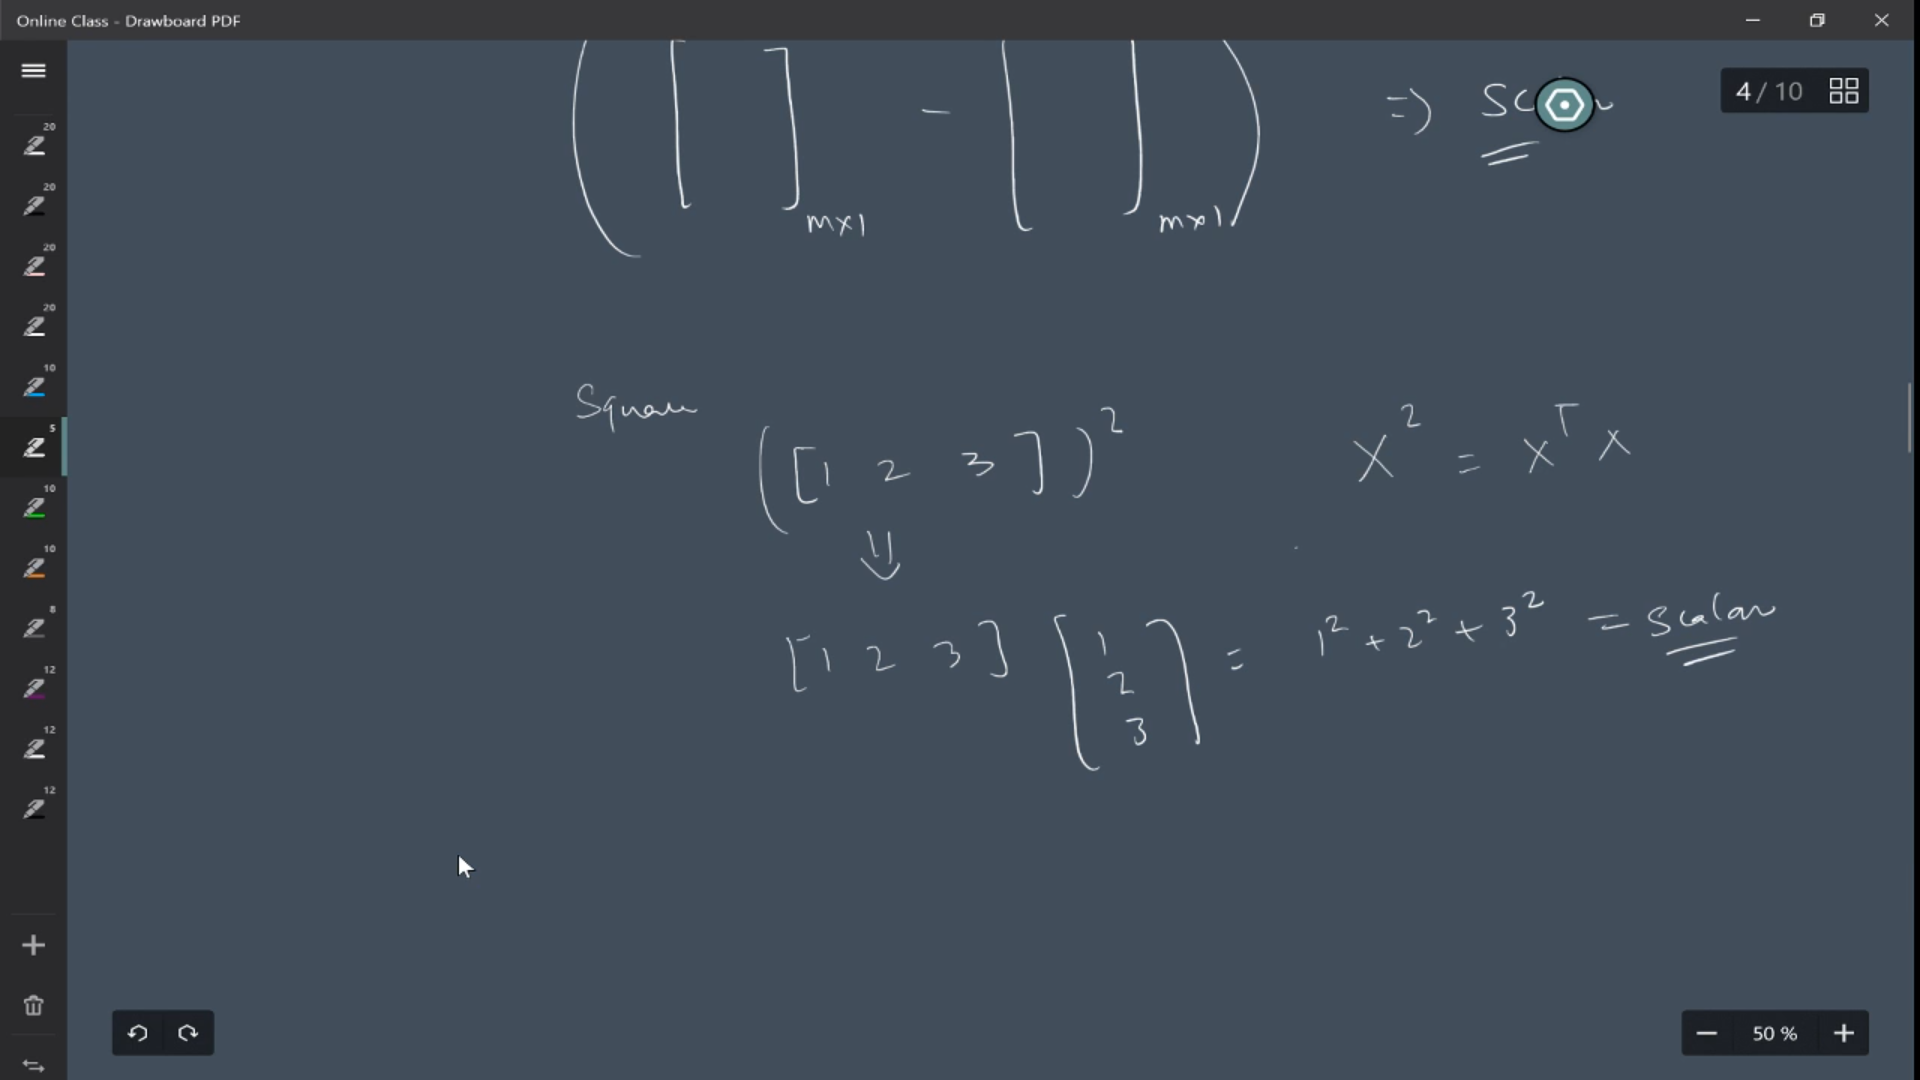 Online Class - Drawboard PDF
4 / 10
20
20
20
20
10
5
10
10
8
12
12
12
[ ]m×1 - [ ]m×1 ⇒
Square
([1 2 3])² X² = Xᵀ X
⇓
[1 2 3] [1 2 3] = 1² + 2² + 3² = Scalar
50 %